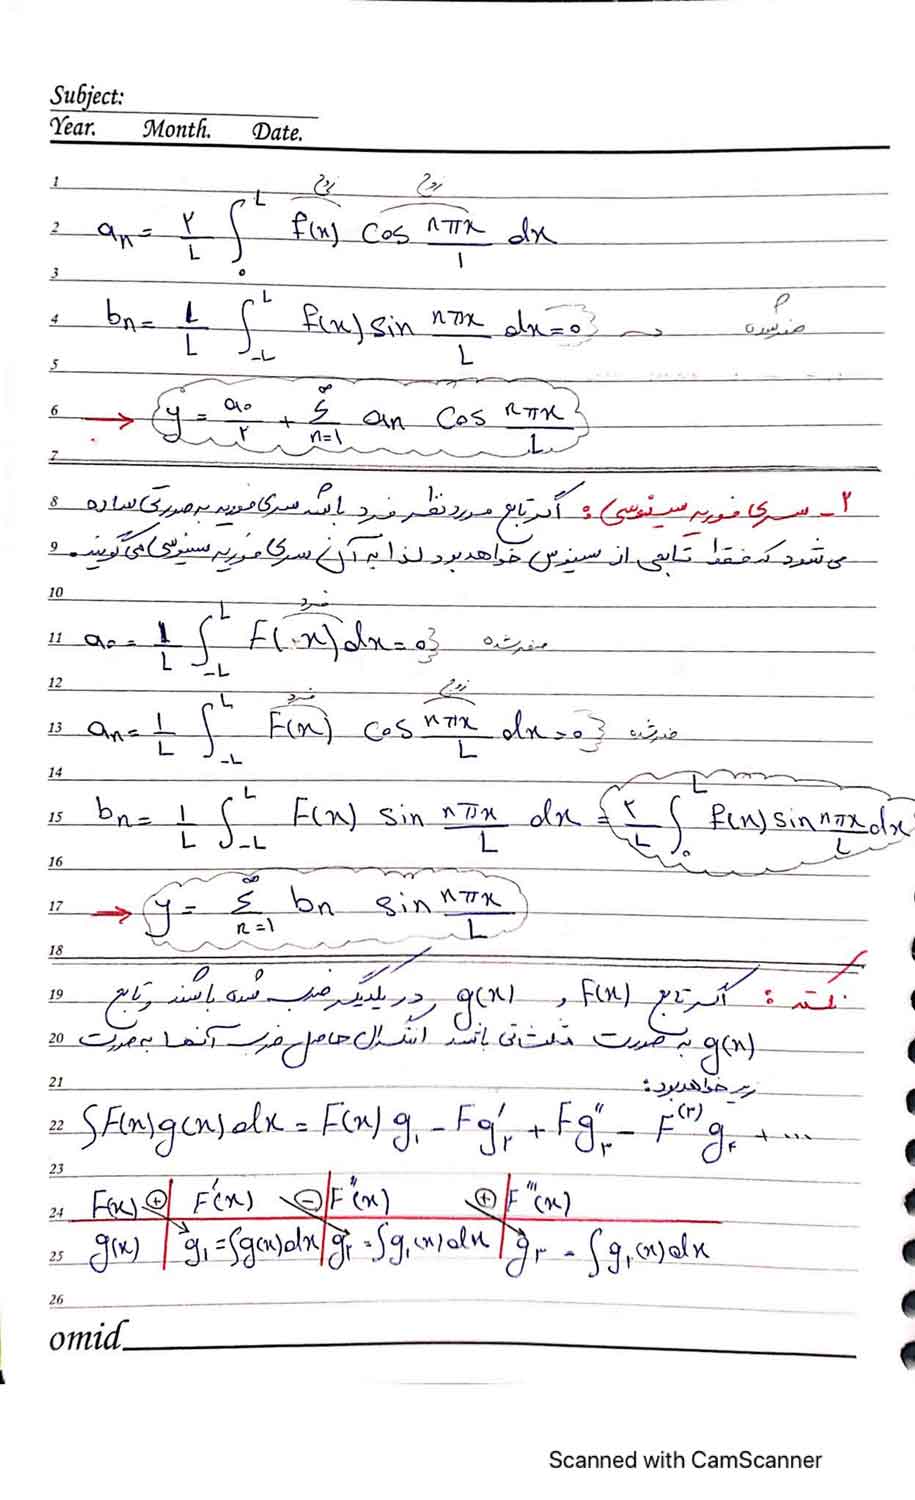 Subject:
Year. Month. Date.
1 زوج زوج
2 aₙ = ۲/L ∫₀ᴸ f(x) cos nπx/1 dx
3
4 bₙ = 1/L ∫₋Lᴸ f(x) sin nπx/L dx = 0} →
5
6 → y = a₀/۲ + Σₙ₌₁^∞ aₙ cos nπx/L
7
8 ۲- سری فوریه سینوسی: اگر تابع مورد نظر فرد باشد سری فوریه به صورتی ساده
9 می شود که فقط تابعی از سینوس خواهد بود لذا به آن سری فوریه سینوسی می گویند.
10 فرد
11 a₀ = 1/L ∫₋Lᴸ F(x) dx = 0} صفر شده
12 فرد زوج
13 aₙ = 1/L ∫₋Lᴸ F(x) cos nπx/L dx = 0} صفر شده
14
15 bₙ = 1/L ∫₋Lᴸ F(x) sin nπx/L dx = ۲/L ∫₀ᴸ f(x) sin nπx/L dx
16
17 → y = Σₙ₌₁^∞ bₙ sin nπx/L
18
19 نکته: اگر تابع F(x) و g(x) در یکدیگر ضرب شده باشند و تابع
20 g(x) به صورت مثلثاتی باشد انتگرال حاصل ضرب آنها به صورت
21 زیر خواهد بود:
22 ∫F(x)g(x)dx = F(x) g₁ - Fg′₂ + Fg″₃ - F⁽³⁾g₄ + ...
23
24 F(x) ⊕ F′(x) ⊖ F″(x) ⊕ F‴(x)
25 g(x) g₁ = ∫g(x)dx g₂ = ∫g₁(x)dx g₃ = ∫g₂(x)dx
26
omid
Scanned with CamScanner